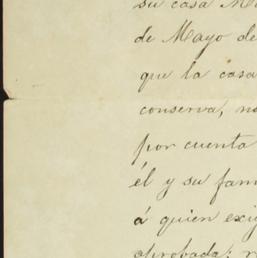 su casa
de Mayo de
que la casa
conserva,
por cuenta
él y su
á quien
aprobada;